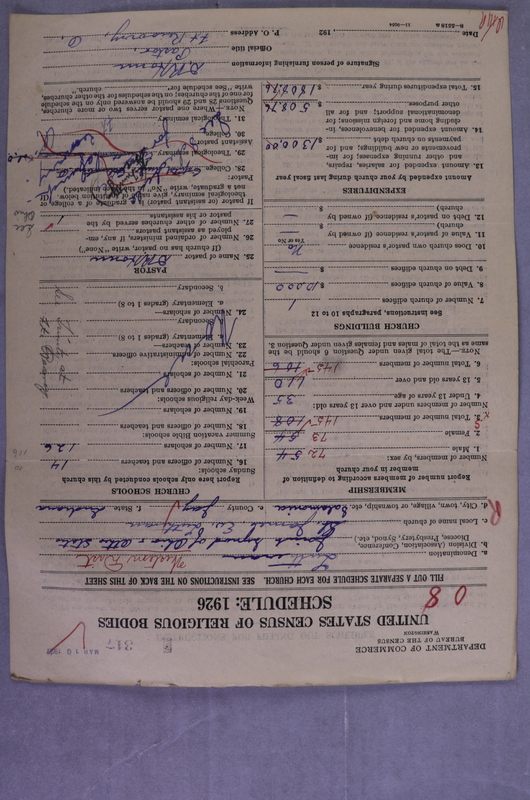 DEPARTMENT OF COMMERCE
BUREAU OF THE CENSUS
WASHINGTON
317
UNITED STATES CENSUS OF RELIGIOUS BODIES
SCHEDULE: 1926
08
FILL OUT A SEPARATE SCHEDULE FOR EACH CHURCH. SEE INSTRUCTIONS ON THE BACK OF THIS SHEET
a. Denomination Lutheran
b. Division (Association, Conference, Diocese, Presbytery, Synod, etc.) Joint Synod of Ohio & other States
Western Dist
c. Local name of church St. James Ev. Lutheran
d. City, town, village, or township, etc. Salamonia e. County Jay f. State Indiana
MEMBERSHIP
Report number of members according to definition of member in your church
Number of members, by sex:
1. Male 72 54
2. Female 73 54
3. Total number of members 145 108
Number of members under and over 13 years old:
4. Under 13 years of age 35
5. 13 years old and over 110
6. Total number of members 145
NOTE.—The total given under Question 6 should be the same as the total of males and females given under Question 3.
CHURCH BUILDINGS
See instructions, paragraphs 10 to 12
7. Number of church edifices 1
8. Value of church edifices $ 10,000
9. Debt on church edifices $ —
10. Does church own pastor's residence No
Yes or No
11. Value of pastor's residence (if owned by church) $ —
12. Debt on pastor's residence (if owned by church) $ —
EXPENDITURES
Amount expended by your church during last fiscal year
13. Amount expended for salaries, repairs, and other running expenses; for improvements or new buildings; and for payments on church debt $ 1300.00
14. Amount expended for benevolences, including home and foreign missions; for denominational support; and for all other purposes $ 508.76
15. Total expenditures during year $ 1808.76
CHURCH SCHOOLS
Report here only schools conducted by this church
Sunday schools:
16. Number of officers and teachers 14
17. Number of scholars 126
Summer vacation Bible schools:
18. Number of officers and teachers
19. Number of scholars
Week-day religious schools:
20. Number of officers and teachers
21. Number of scholars
Parochial schools:
22. Number of administrative officers
23. Number of teachers—
a. Elementary (grades 1 to 8)
b. Secondary
24. Number of scholars—
a. Elementary (grades 1 to 8)
b. Secondary
PASTOR
25. Name of pastor
(If church has no pastor, write "None")
26. Number of ordained ministers, if any, employed as assistant pastors
27. Number of other churches served by the pastor or his assistants
If pastor (or assistant pastor) is a graduate of a college or theological seminary, give name of institution below. (If not a graduate, write "No" in the space indicated.)
Pastor:
28. College
29. Theological Seminary
Assistant pastor:
30. College
31. Theological Seminary
NOTE.—Where one pastor serves two or more churches, Questions 28 and 29 should be answered only on the schedule for one of the churches; on the schedules for the other churches, write "See schedule for church."
Signature of person furnishing information
Official title Pastor,
P. O. Address Ft Recovery, O.
Date , 192
8—5518 a
11—9084